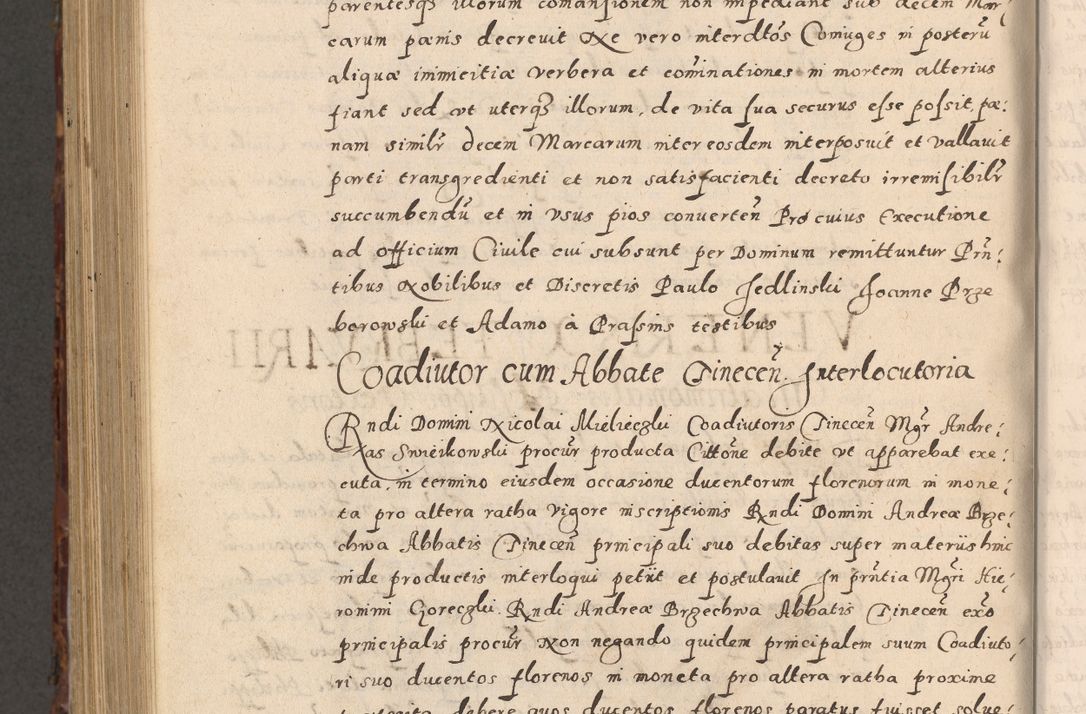 parentesq3 illorum comansionem non impediant sub decem Mar:
carum pœnis decreuit Ne vero interdtős Coniuges in posterũ
aliquæ inimicitiæ verbera et com̃inationes in mortem alterius
fiant sed vt uterq3 illorum, de vita sua securus esse possit, pæ:
nam similr̃ decem Marcarum inter eosdem interposuit et vallauit
parti transgredienti et non satisfacienti decreto irremisibilr̃
succumbendũ et in vsus pios conuerteñ Pro cuius Executione
ad officium Ciuile cui subsunt per Dominum remittuntur Prñ:
tibus Nobilibus et Discretis Paulo Jedlinski Joanne Brze
borowski et Adamo à Prassnis testibus
Coadiutor cum Abbate Tineceñ. Interlocutoria
Rndi Domini Nicolai Mielieczki Coadiutoris Tineceñ Mgr̃ Andre:
as Swieikowski procur̃ producta Cittõne debite vt apparebat exe:
cuta, in termino eiusdem occasione ducentorum florenorum in mone:
ta pro altera ratha vigore inscriptionis Rndi Domini Andreæ Brze:
chwa Abbatis Tineceñ principali suo debitas super materiis hinc
inde productis interloqui petiit et postulauit In prñtia Mgr̃i Hie:
ronimi Goreczki Rndi Andreæ Brzechwa Abbatis Tineceñ exõ
principalis procur̃ Non negando quidem principalem suum Coadiuto:
ri suo ducentos florenos in moneta pro altera ratha proxime
debere quos ducentos florenos paratus fuisset solue: